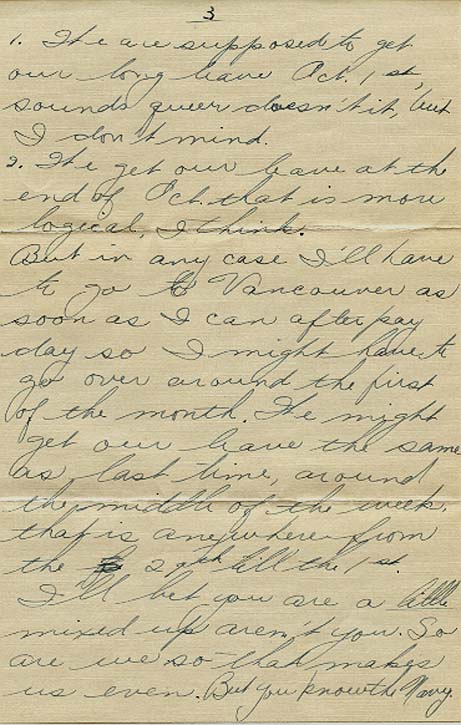 3
1. We are supposed to get
our long leave Oct. 1st,
sounds queer doesn't it, but
I don't mind.
2. We get our leave at the
end of Oct. that is more
logical, I think.
But in any case I'll have
to go to Vancouver as
soon as I can after pay
day so I might have to
go over around the first
of the month. We might
get our leave the same
as last time, around
the middle of the week.
that is anywhere from
the 29th till the 1st.
I'll bet you are a little
mixed up aren't you. So
are we so that makes
us even. But you know the Navy.